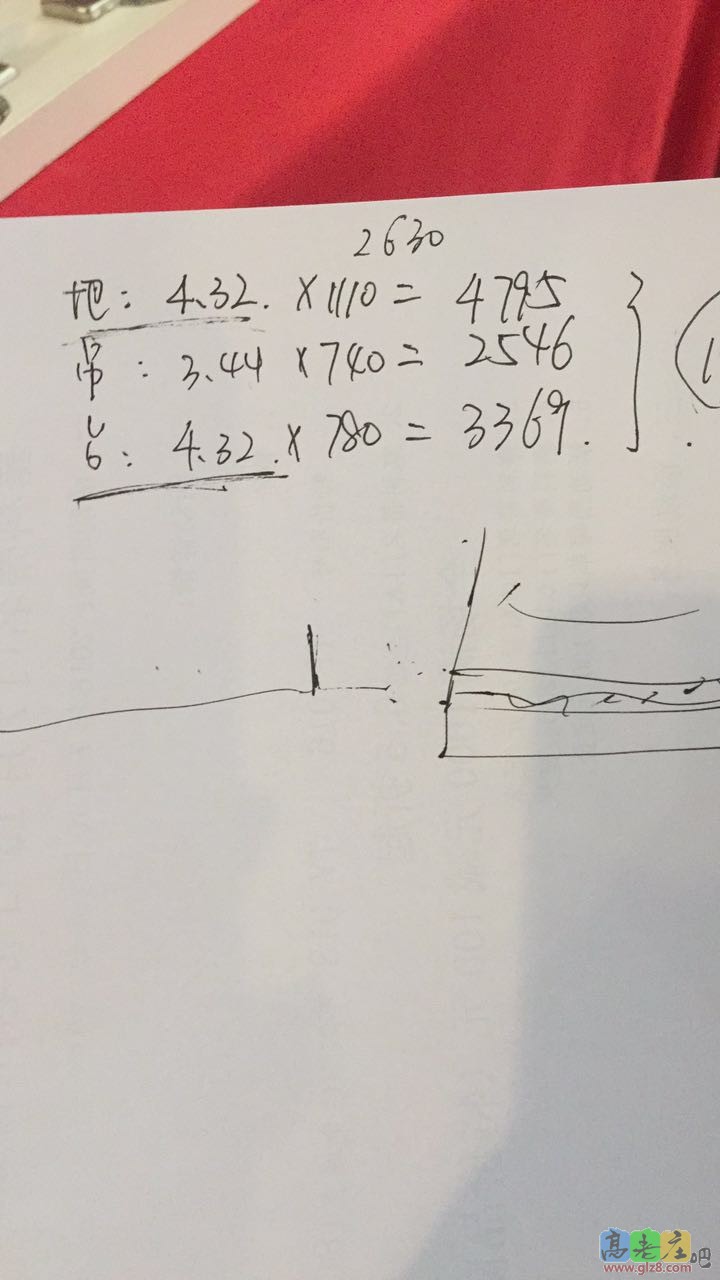 2630
地: 4.32. ×1110 = 4795
吊: 3.44 ×740 = 2546
台: 4.32. × 780 = 3369.
高老庄吧
www.glz8.com